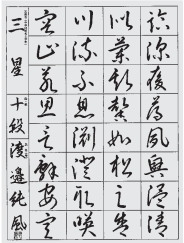 臨深履薄夙興温凊
似蘭斯馨如松之盛
川流不息淵澄取映
容止若思言辭安定
三星 十段 渡邉純風